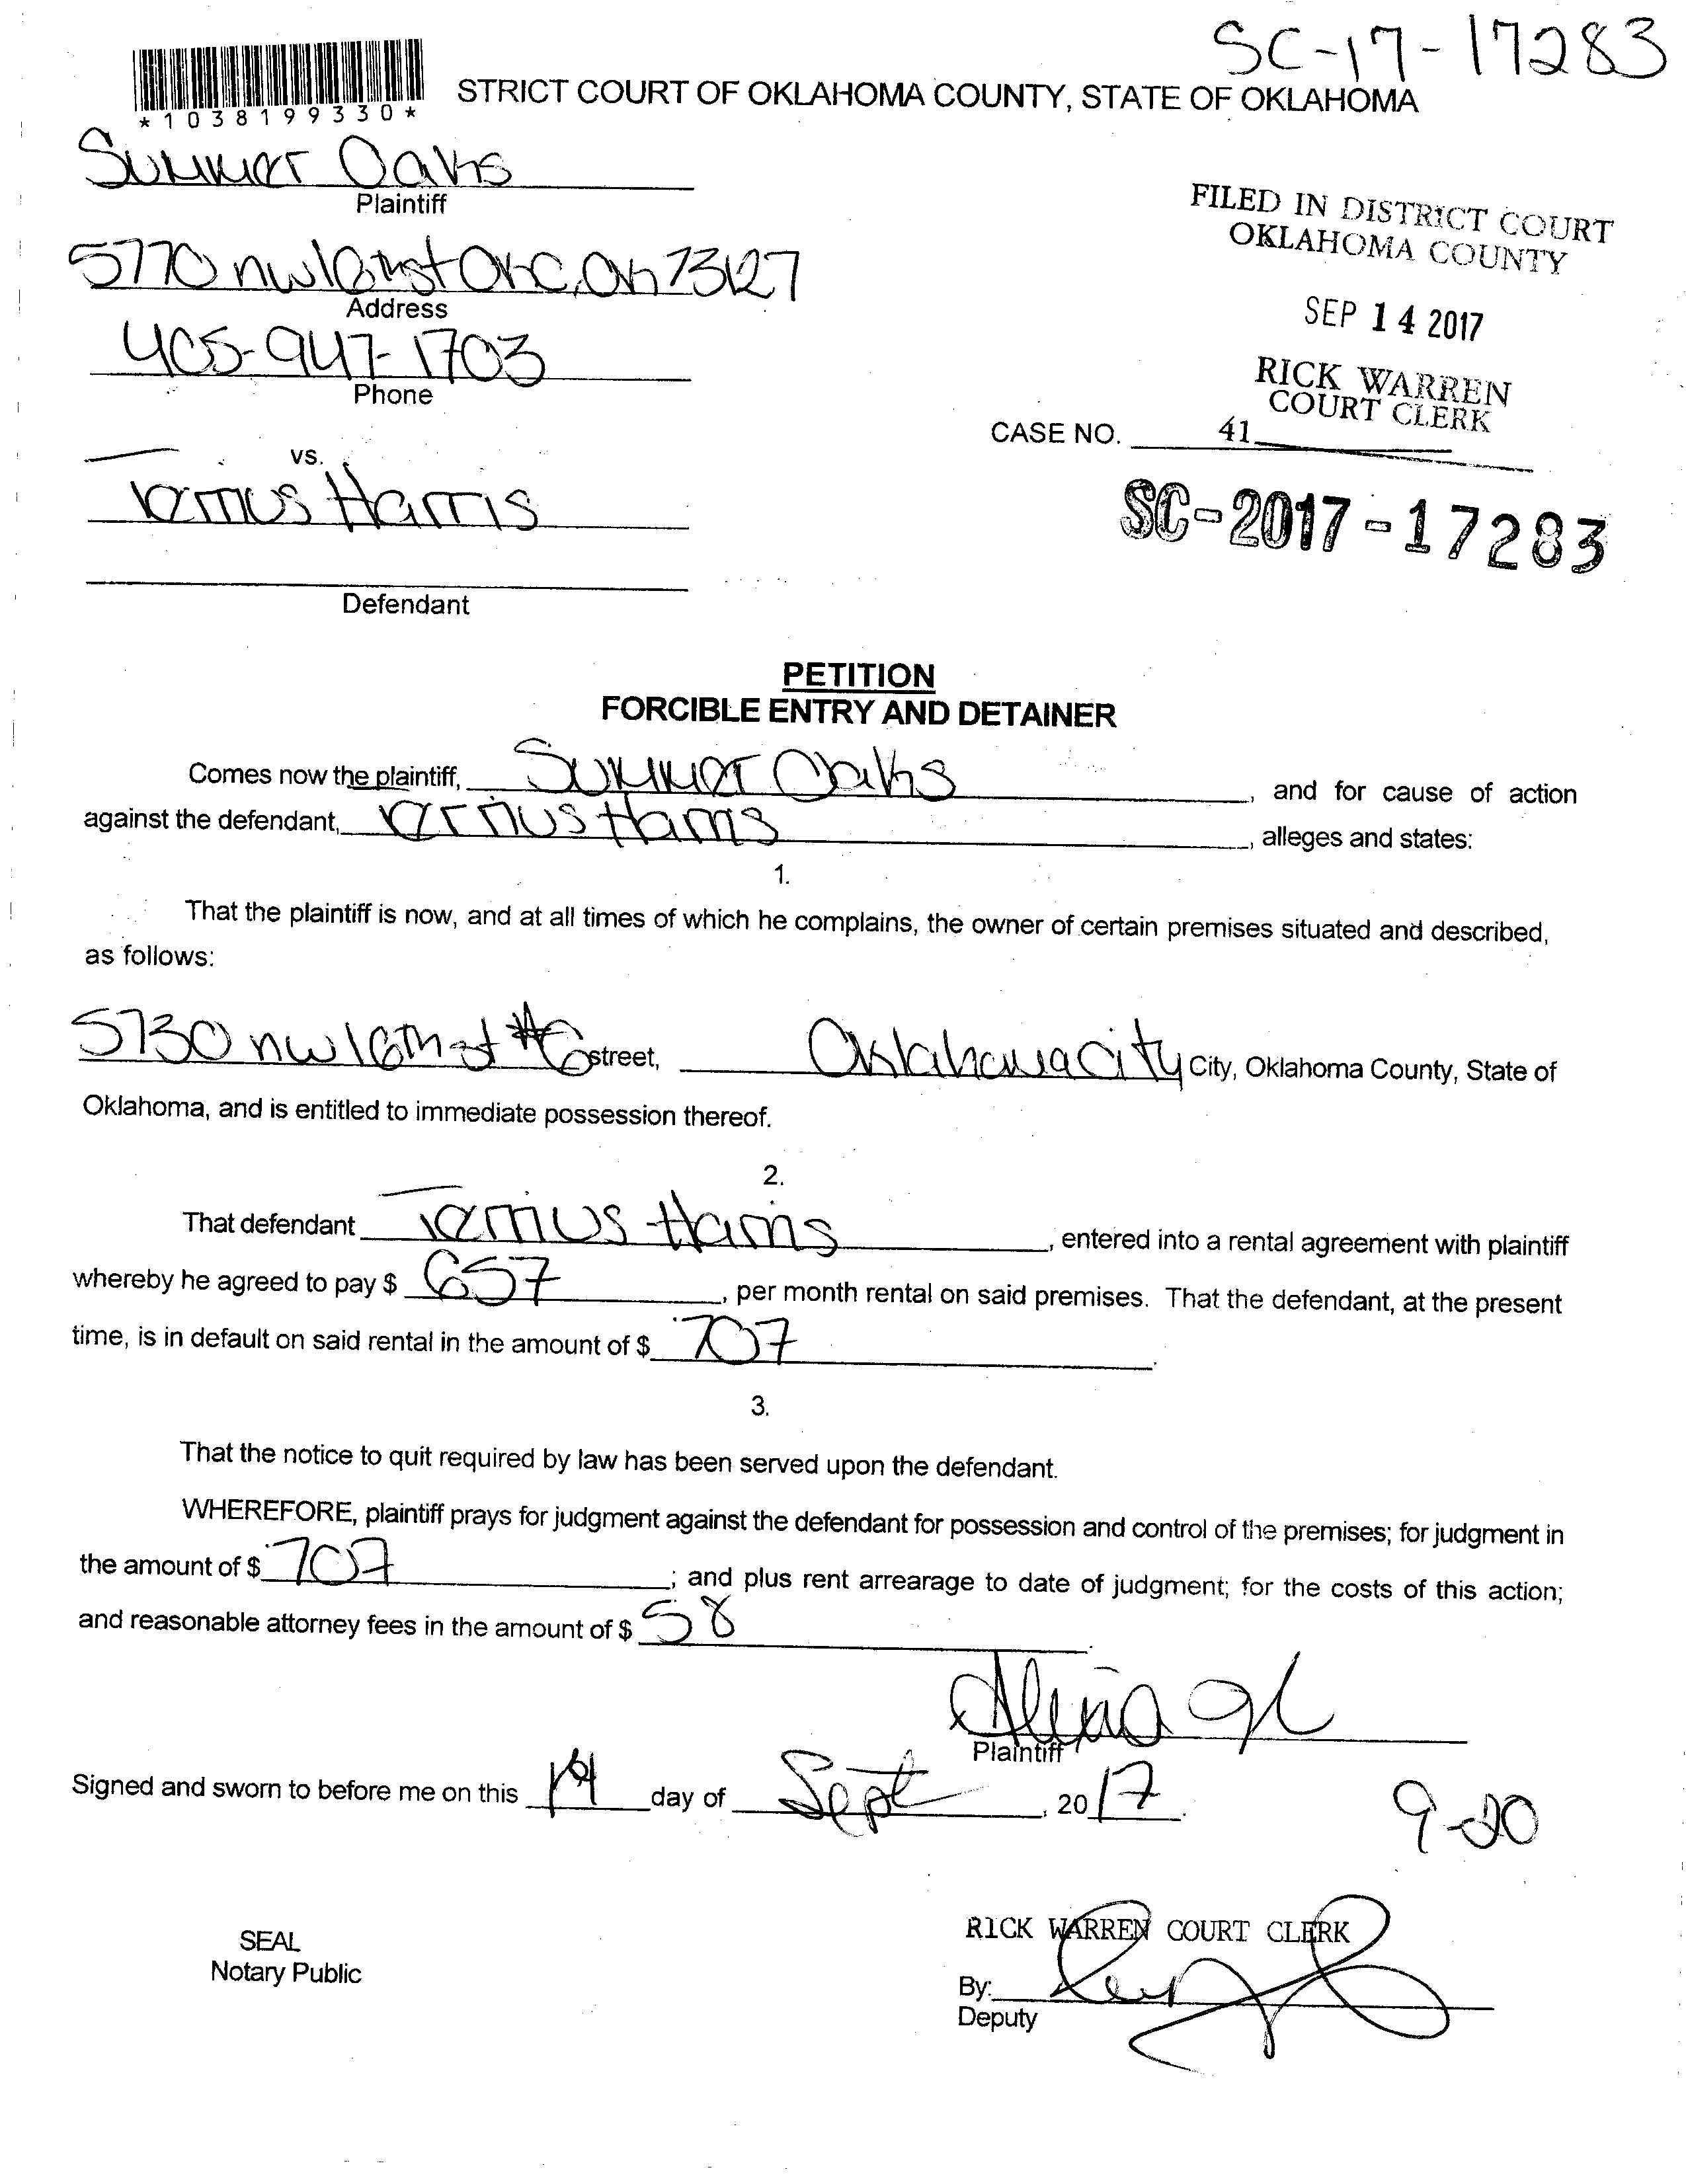 SC-17-17283
*1038199330*
STRICT COURT OF OKLAHOMA COUNTY, STATE OF OKLAHOMA
Summer Oaks
Plaintiff
5770 nw 16th st OKC, OK 73127
Address
405-947-1703
Phone
FILED IN DISTRICT COURT
OKLAHOMA COUNTY
SEP 14 2017
RICK WARREN
COURT CLERK
CASE NO.
41
vs.
Harris
SC-2017-17283
Defendant
PETITION
FORCIBLE ENTRY AND DETAINER
Comes now the plaintiff, Summer Oaks, and for cause of action
against the defendant, Harris, alleges and states:
1.
That the plaintiff is now, and at all times of which he complains, the owner of certain premises situated and described,
as follows:
5730 nw 16th st #6 street, Oklahoma City City, Oklahoma County, State of
Oklahoma, and is entitled to immediate possession thereof.
2.
That defendant Harris, entered into a rental agreement with plaintiff
whereby he agreed to pay $ 657, per month rental on said premises. That the defendant, at the present
time, is in default on said rental in the amount of $ 707.
3.
That the notice to quit required by law has been served upon the defendant.
WHEREFORE, plaintiff prays for judgment against the defendant for possession and control of the premises; for judgment in
the amount of $ 707; and plus rent arrearage to date of judgment; for the costs of this action;
and reasonable attorney fees in the amount of $ 58.
Plaintiff
Signed and sworn to before me on this 14 day of Sept, 2017.
9-20
SEAL
Notary Public
RICK WARREN COURT CLERK
By:
Deputy